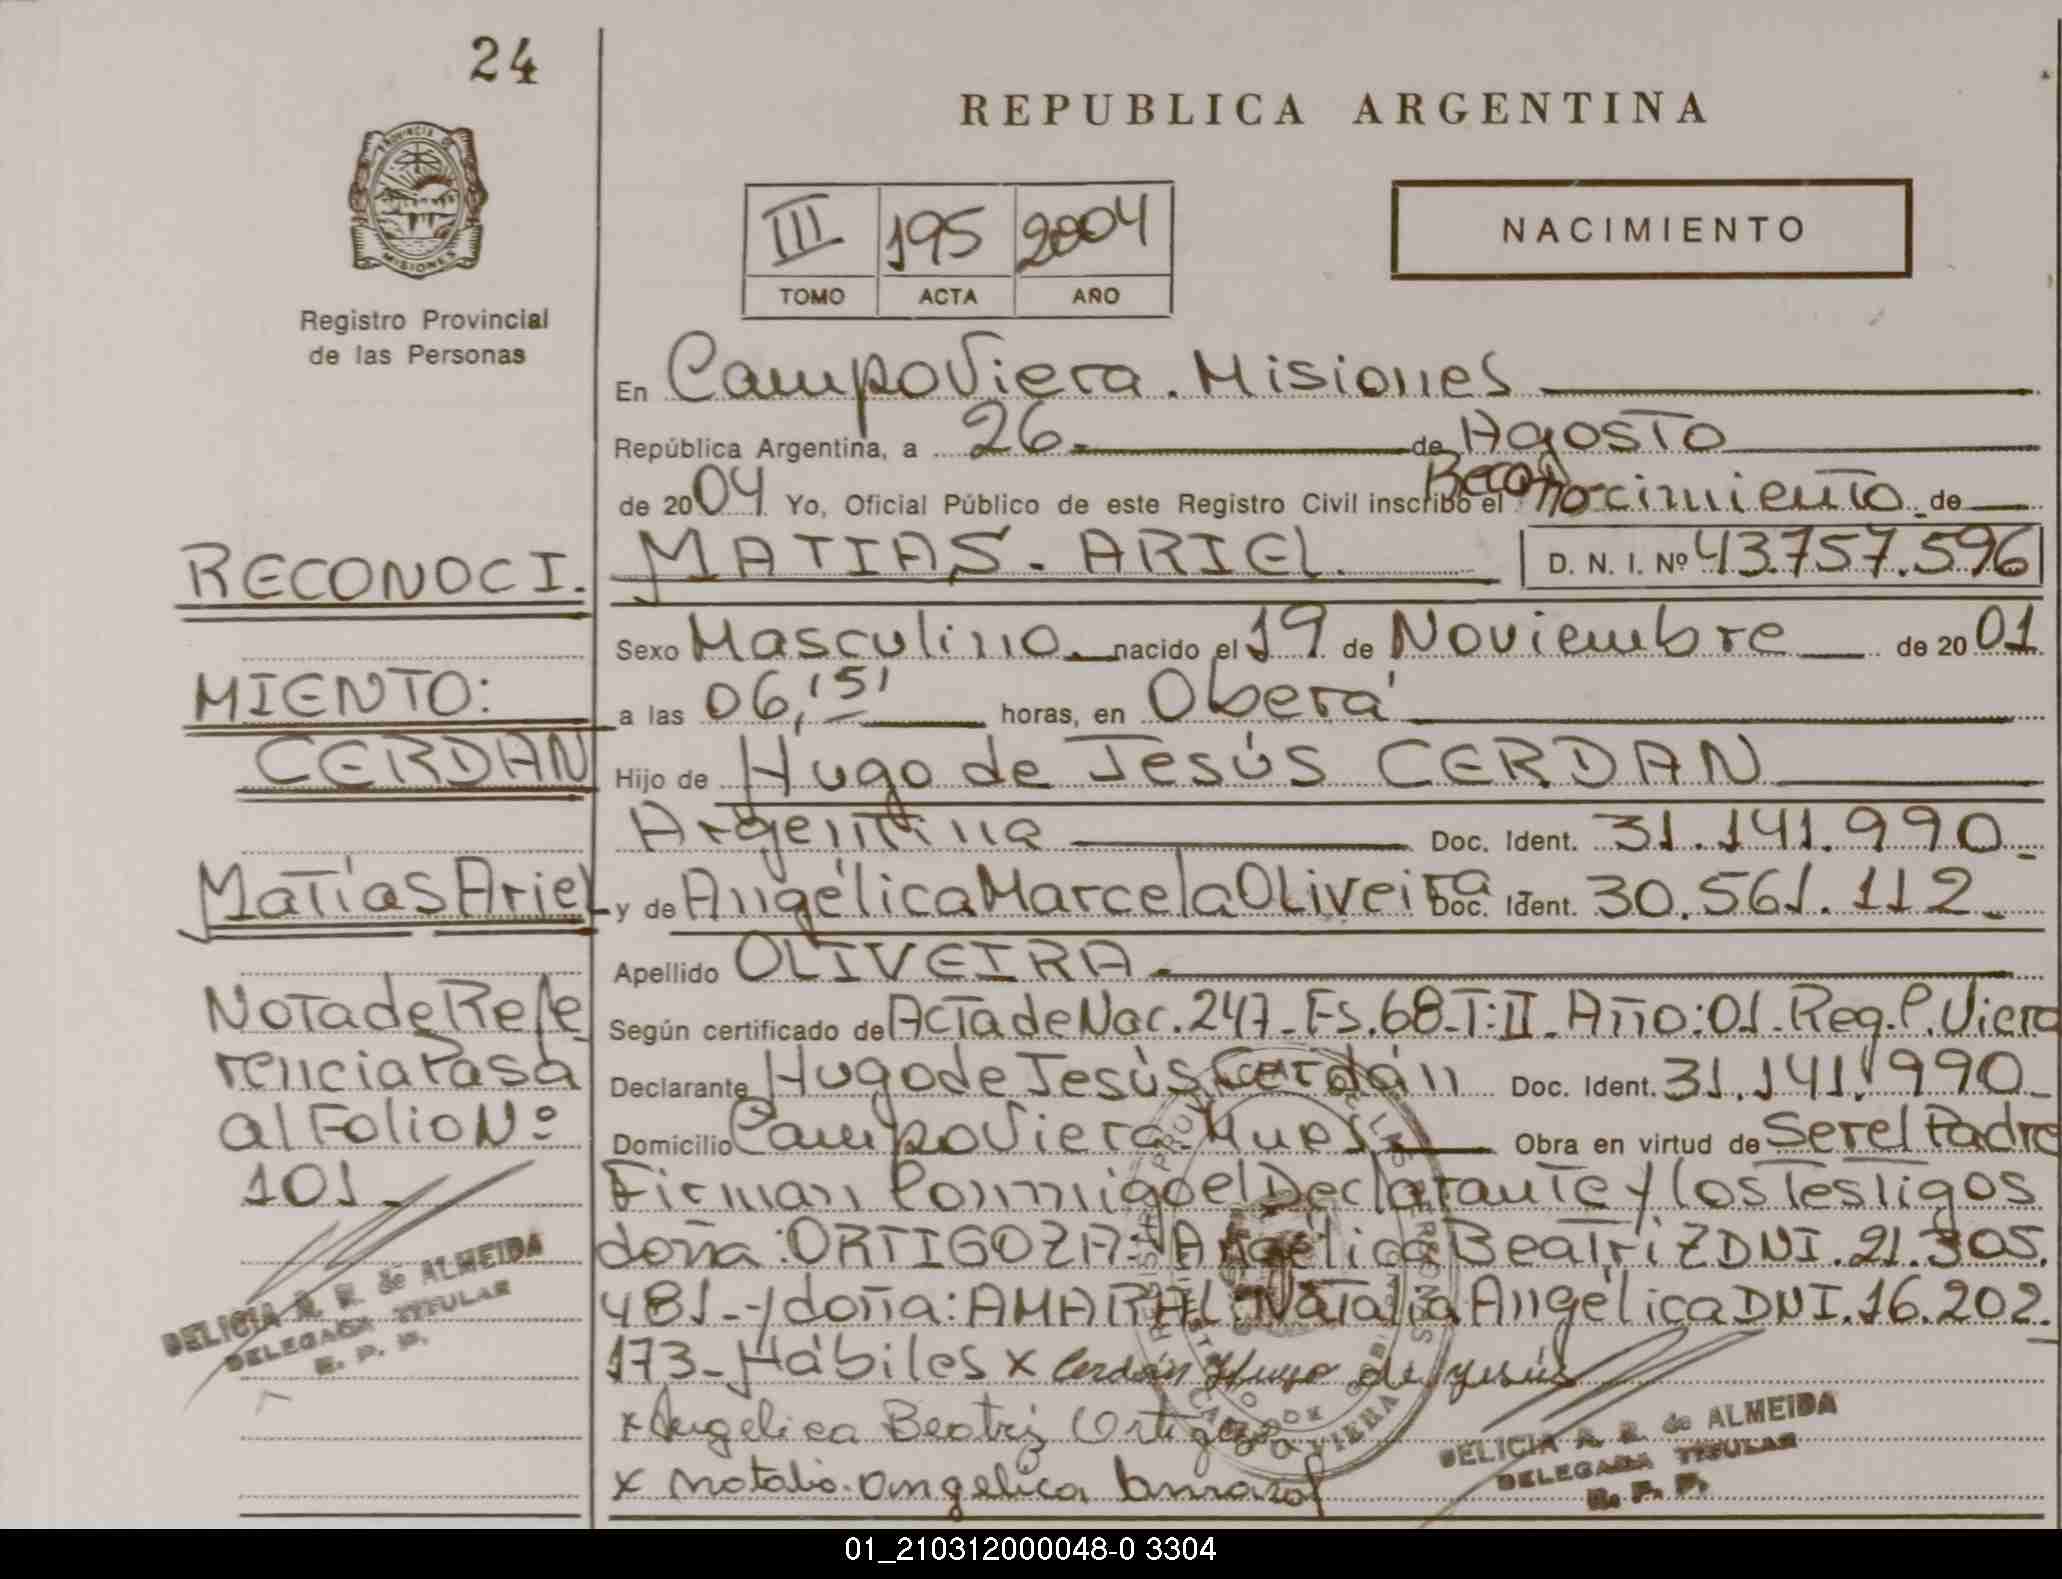 24
REPUBLICA ARGENTINA
PROVINCIA DE
MISIONES
Registro Provincial
de las Personas
III 195 2004
TOMO ACTA AÑO
NACIMIENTO
En Campo Viera. Misiones
República Argentina, a 26 de Agosto
de 2004 Yo, Oficial Público de este Registro Civil inscribo el Reconocimiento de
MATIAS - ARIEL. D. N. I. Nº 43.757.596
Sexo Masculino. nacido el 19 de Noviembre de 2001
a las 06,15 horas, en Oberá
Hijo de Hugo de Jesús CERDAN
Argentina Doc. Ident. 31.141.990.
y de Angélica Marcela Oliveira Doc. Ident. 30.561.112.
Apellido OLIVEIRA
Según certificado de Acta de Nac. 247-Fs.68-T:II-Año:01-Reg.C.Viera
Declarante Hugo de Jesús Cerdán Doc. Ident. 31.141.990
Domicilio Campo Viera Mnes Obra en virtud de Ser el Padre
Firman Conmigo el Declarante y los Testigos
doña: ORTIGOZA: Angélica Beatriz DNI.21.305.
481-y doña: AMARAL: Natalia Angélica DNI.16.202.
173-Hábiles x Cerdán Hugo de Jesús
x Angelica Beatriz Ortigoza
x Natalia Angelica Amaral
DELICIA R. R. de ALMEIDA
DELEGADA TITULAR
R. P. P.
RECONOCI.
MIENTO:
CERDAN
Matías Ariel
Nota de Refe
rencia Pasa
al Folio Nº
101-
DELICIA R. R. de ALMEIDA
DELEGADA TITULAR
R. P. P.
01_210312000048-0 3304